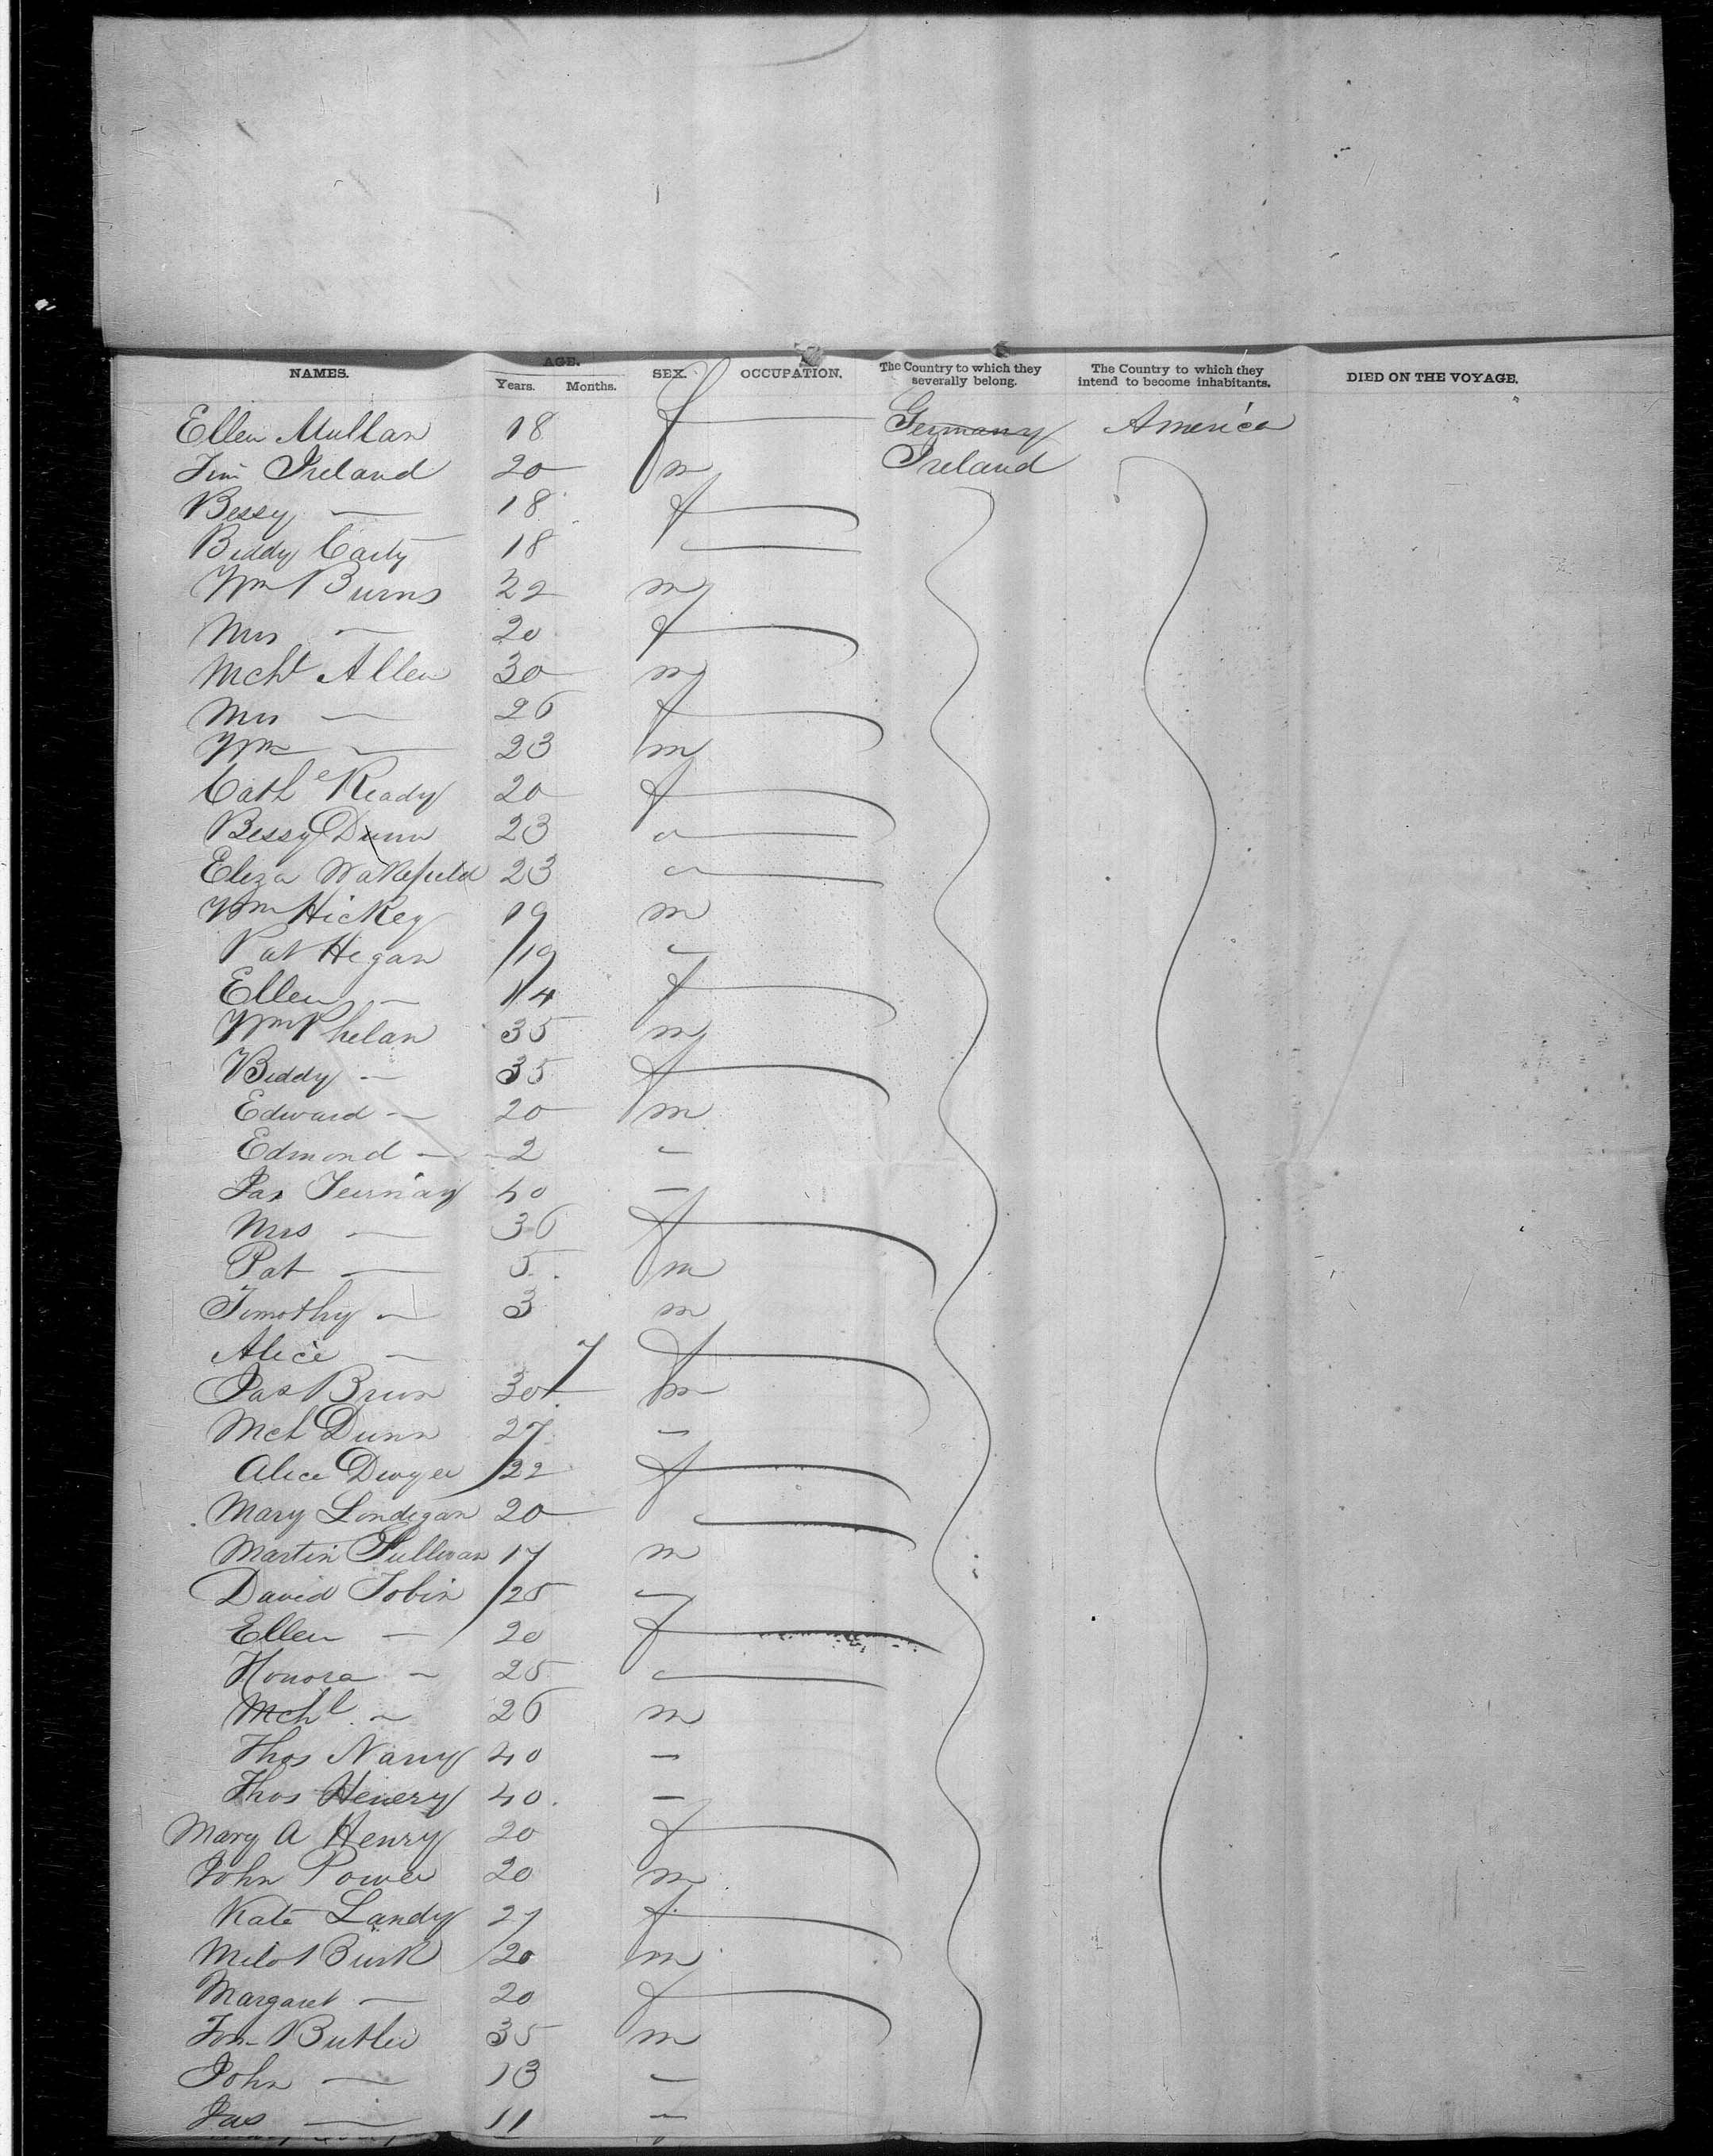 NAMES. AGE. Years. Months. SEX. OCCUPATION. The Country to which they severally belong. The Country to which they intend to become inhabitants. DIED ON THE VOYAGE.
Ellen Mullan 18 f Germany America
Jim Ireland 20 m Ireland
Bessy — 18 f
Biddy Carty 18
Wm Burns 22 m
Mrs — 20 f
Mchl Allen 30 m
Mrs — 26 f
Wm — 23 m
Cathe Ready 20 f
Bessy Dunn 23
Eliza Wakefield 23
Wm Hickey 19 m
Pat Hegan 19
Ellen — 14 f
Wm Phelan 35 m
Biddy — 35 f
Edward — 20 m
Edmond — 2
Jas 40 —
Mrs — 36 f
Pat — 5 m
Timothy — 3 m
Alice — 7 f
Jas Brun 30 m
Mch Dunn 27 —
Alice Dwyer 22 f
Mary Londigan 20
Martin Sullivan 17 m
David Tobin 25
Ellen — 20 f
Honora — 25
Mchl — 26 m
Thos 40 —
Thos Henery 40 —
Mary A Henry 20 f
John Power 20 m
Kate Landy 27 f
Burk 20 m
Margaret — 20 f
Butler 35 m
John — 13
Jas — 11